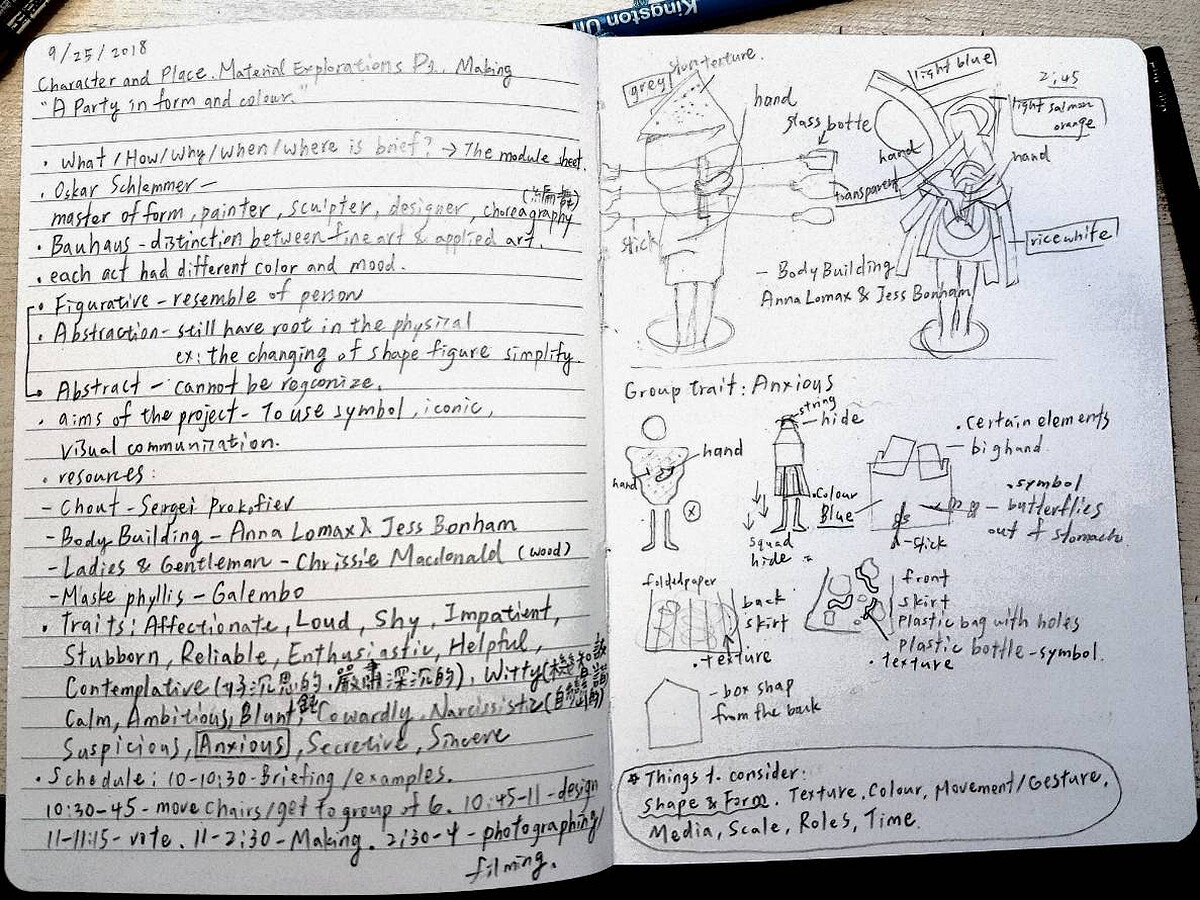 Kingston Un
9/25/2018
Character and Place. Material Explorations P1, Making
"A Party in form and colour."
· What/How/Why/When/where is brief? → The module sheet.
· Oskar Schlemmer -
master of form, painter, sculpter, designer, choreagraphy
· Bauhaus - distinction between fine art & applied art.
· each act had different color and mood.
· Figurative - resemble of person
· Abstraction - still have root in the physical
ex: the changing of shape figure simplify.
· Abstract - cannot be rogconize.
· aims of the project - To use symbol, iconic,
visual communization.
· resources:
- Chout - Sergei Prokofier
- Body Building - Anna Lomax & Jess Bonham
- Ladies & Gentleman - Chrissie Macdonald (wood)
- Maske phyllis - Galembo
· Traits: Affectionate, Loud, Shy, Impatient,
Stubborn, Reliable, Enthusiastic, Helpful,
Contemplative (好沉思的.嚴肅深沉的), Witty (機智詼諧)
Calm, Ambitious, Blunt, 鈍 Cowardly, Narcissistz (自戀的)
Suspicious, Anxious, Secretive, Sincere
· Schedule: 10-10:30-Briefing/examples.
10:30-45 - move chairs/get to group of 6. 10:45-11 - design
11-11:15 - vote. 11-2:30 - Making. 2:30-4 - photographing/
filming.
grey
texture.
hand
glass botte
transparent
stick
light blue
2:45
light salmon
orange
hand
hand
rice white
- Body Building
Anna Lomax & Jess Bonham
Group trait: Anxious
hand
hand
string
hide
squad
hide
· Colour
Blue
· Certain elements
- big hand
· symbol
- butterflies
out of stomach.
- stick
folded paper
back
skirt
· texture
front
skirt
plastic bag with holes
plastic bottle - symbol.
· texture
- box shap
from the back
* Things to consider:
Shape & Form. Texture. Colour, Movement/Gesture,
Media, Scale, Roles, Time.